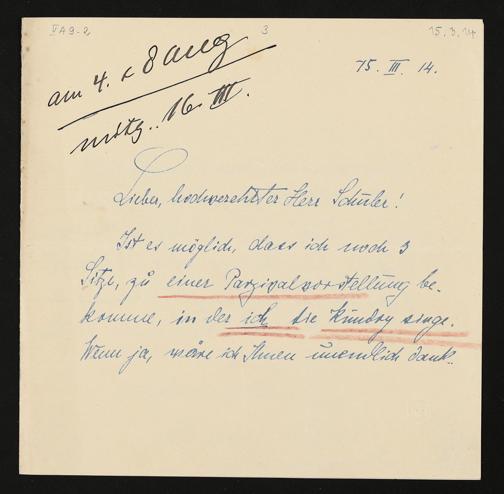 VA9-2
3
15.3.14
am 4. & 8 aug
mitg.. 16. III.
15. III. 14.
Lieber, hochverehrter Herr Schuler!
Ist es möglich, dass ich noch 3
Sitze, zu einer Parzivalvorstellung be-
komme, in der ich die Kundry singe.
Wenn ja, wäre ich Ihnen unendlich dank-